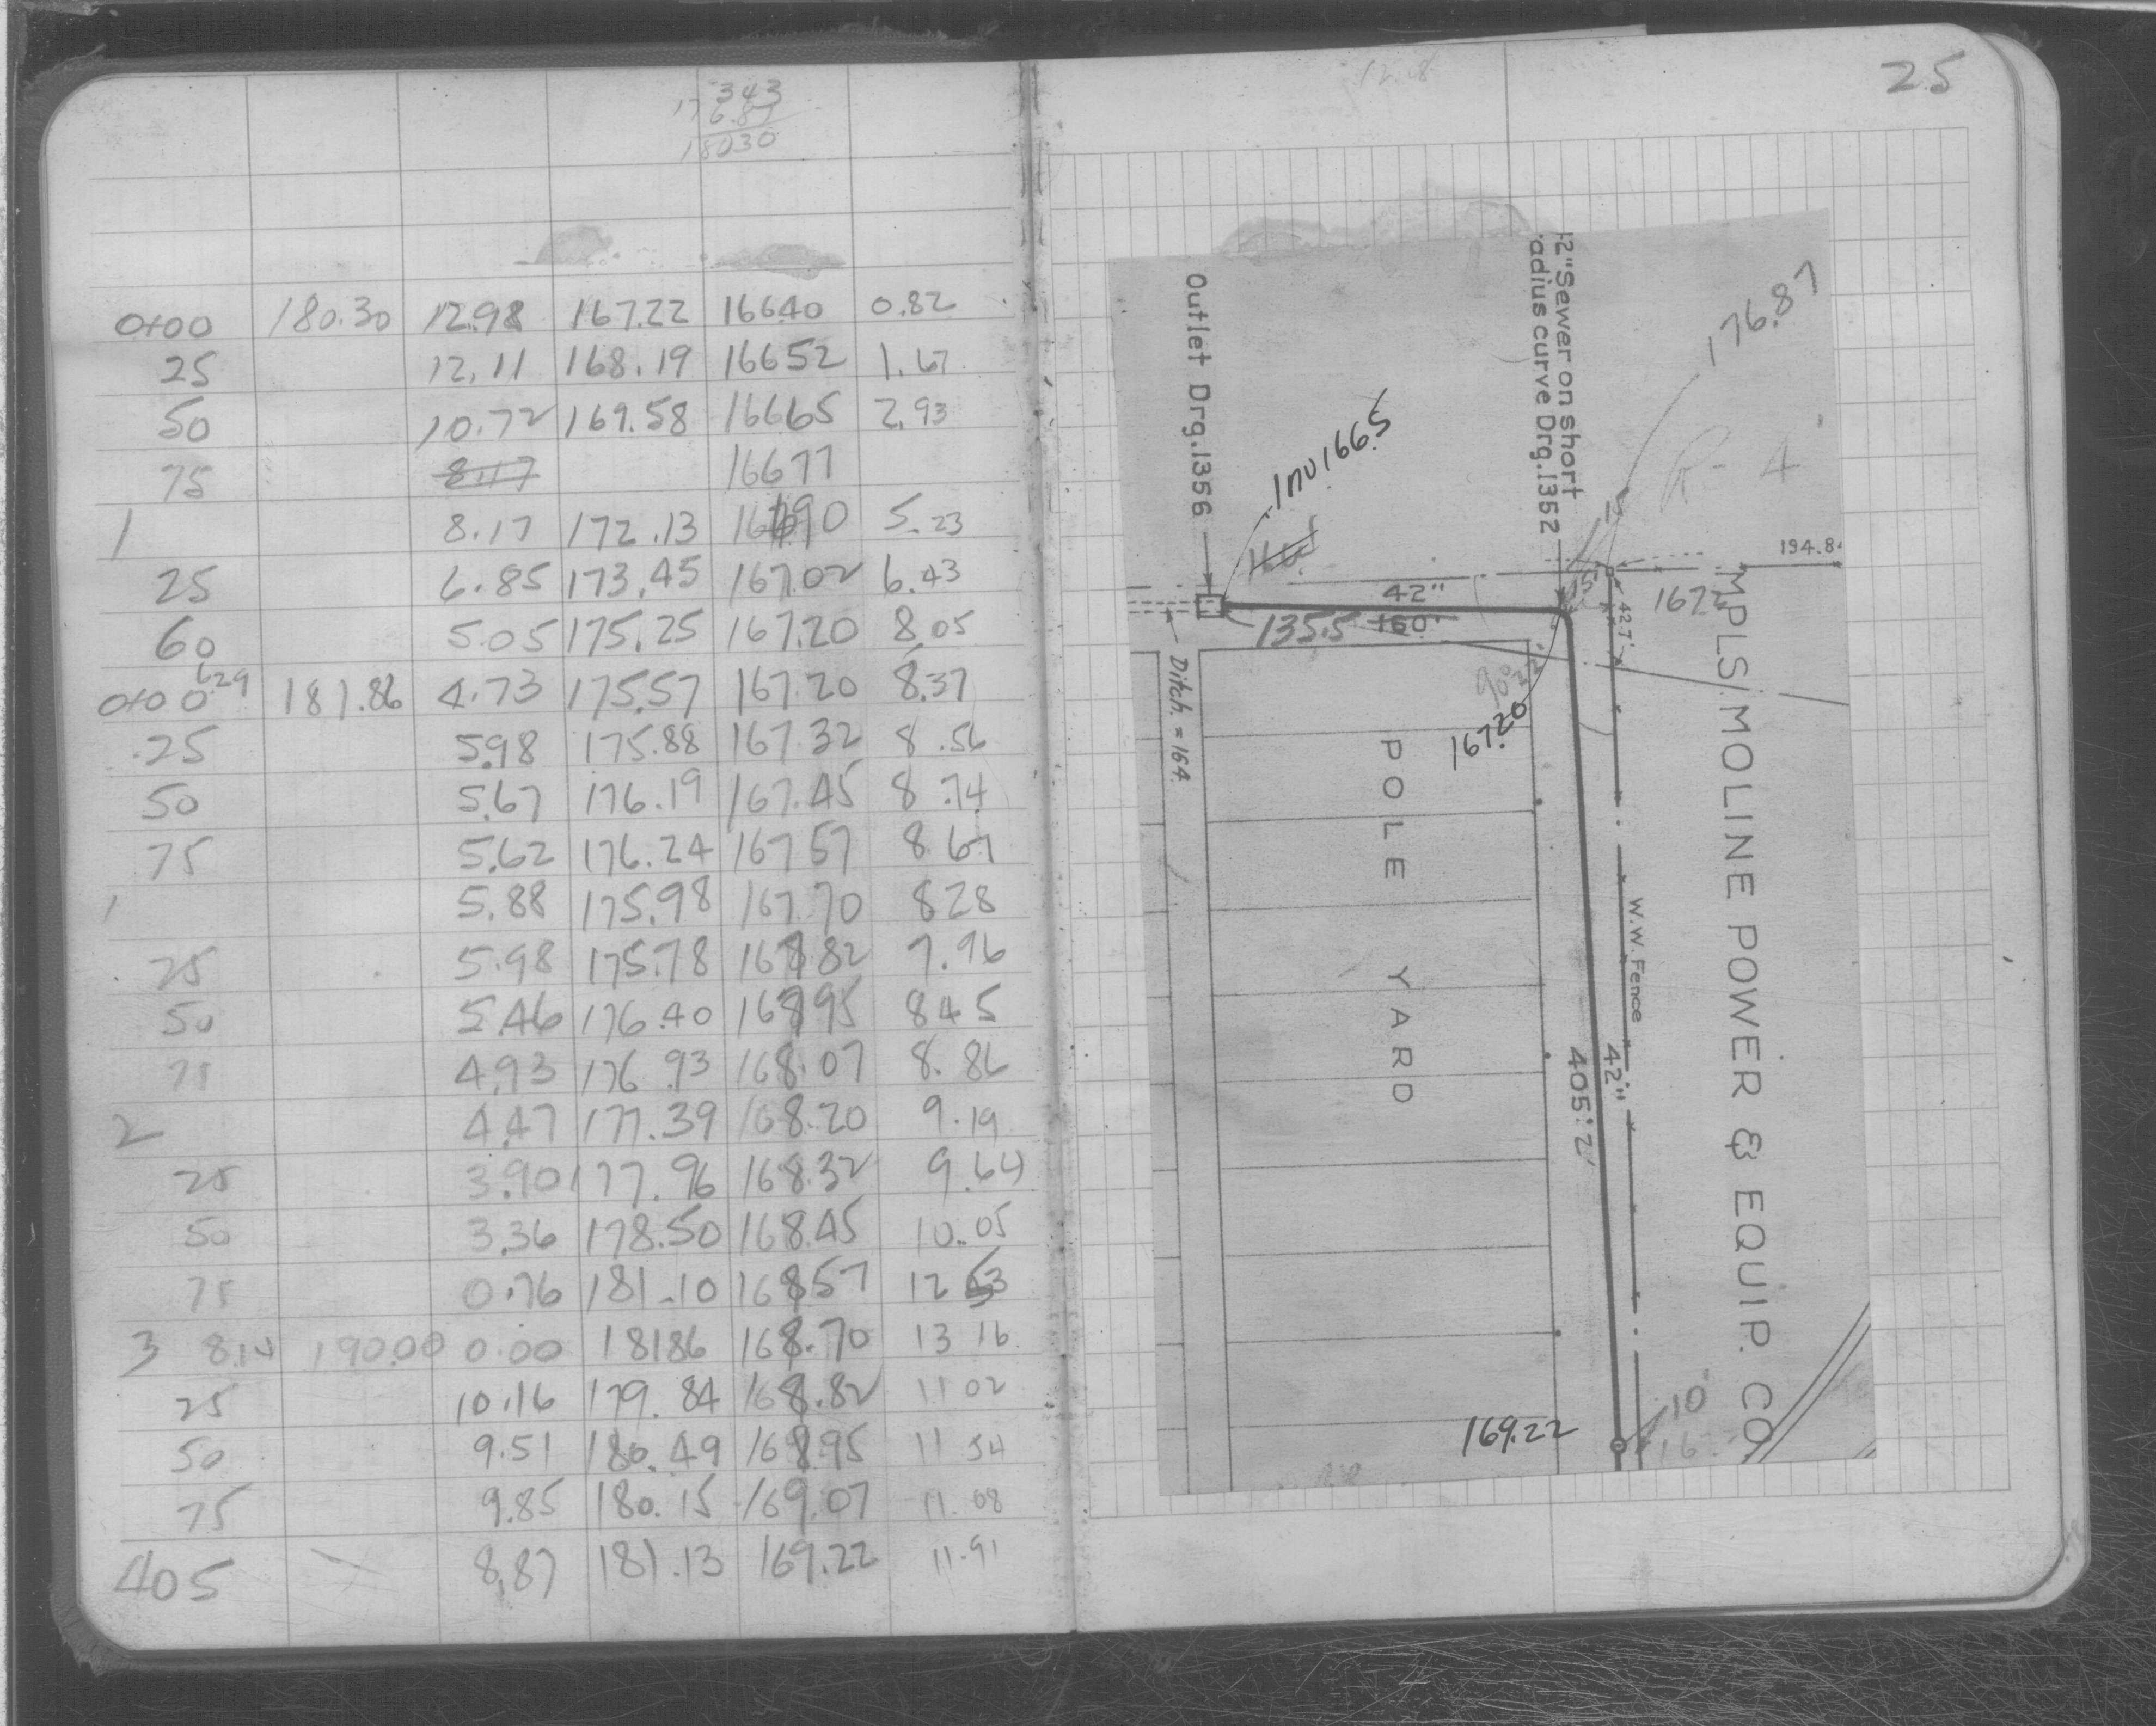 343
176.87
18030
0+00 180.30 12.98 167.22 16640 0.82
25 12.11 168.19 16652 1.67
50 10.72 169.58 16665 2.93
75 8.17 16677
1 8.17 172.13 16690 5.23
25 6.85 173.45 167.02 6.43
60 5.05 175.25 167.20 8.05
0+00 6.29 181.86 4.73 175.57 167.20 8.37
25 5.98 175.88 167.32 8.56
50 5.67 176.19 167.45 8.74
75 5.62 176.24 16757 8.67
1 5.88 175.98 167.70 828
25 5.98 175.78 167.82 7.96
50 5.46 176.40 167.95 845
75 4.93 176.93 168.07 8.86
2 4.47 177.39 168.20 9.19
25 3.90 177.96 168.32 9.64
50 3.36 178.50 168.45 10.05
75 0.76 181.10 16857 12 53
3 8.14 190.00 0.00 18186 168.70 13 16
25 10.16 179.84 168.82 11 02
50 9.51 180.49 168.95 11 54
75 9.85 180.15 169.07 11.08
405 8.87 181.13 169.22 11.91
25
12.18
Outlet Drg.1356
12"Sewer on short
radius curve Drg.1352
176.87
R-4
Inv 166.5
194.84
42"
135.5 160'
15'
42.7'
167.2
90° 22'
167.20
Ditch = 164.
POLE YARD
W.W.Fence
42"
405.2'
MPLS. MOLINE POWER & EQUIP. CO.
169.22
10'